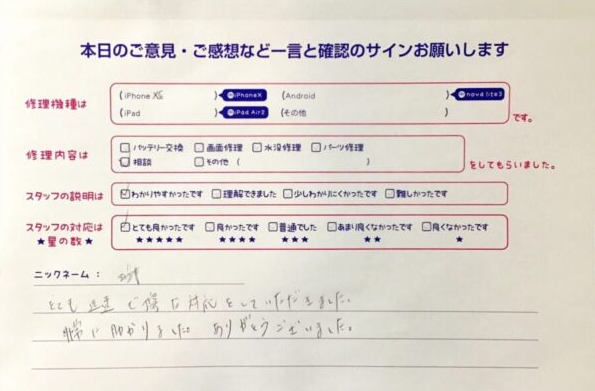 本日のご意見・ご感想など一言と確認のサインお願いします
修理機種は (iPhone XS )例iPhoneX (Android )例nova lite2
(iPad )例iPad Air2 (その他 ) です。
修理内容は □バッテリー交換 □画面修理 □水没修理 □パーツ修理
□相談 □その他 ( ) をしてもらいました。
スタッフの説明は ☑わかりやすかったです □理解できました □少しわかりにくかったです □難しかったです
スタッフの対応は ☑とても良かったです □良かったです □普通でした □あまり良くなかったです □良くなかったです
★星の数★ ★★★★★ ★★★★ ★★★ ★★ ★
ニックネーム:
とても 迅速 で 対応 をしていただきました。
非常に 助かりました。 ありがとうございました。